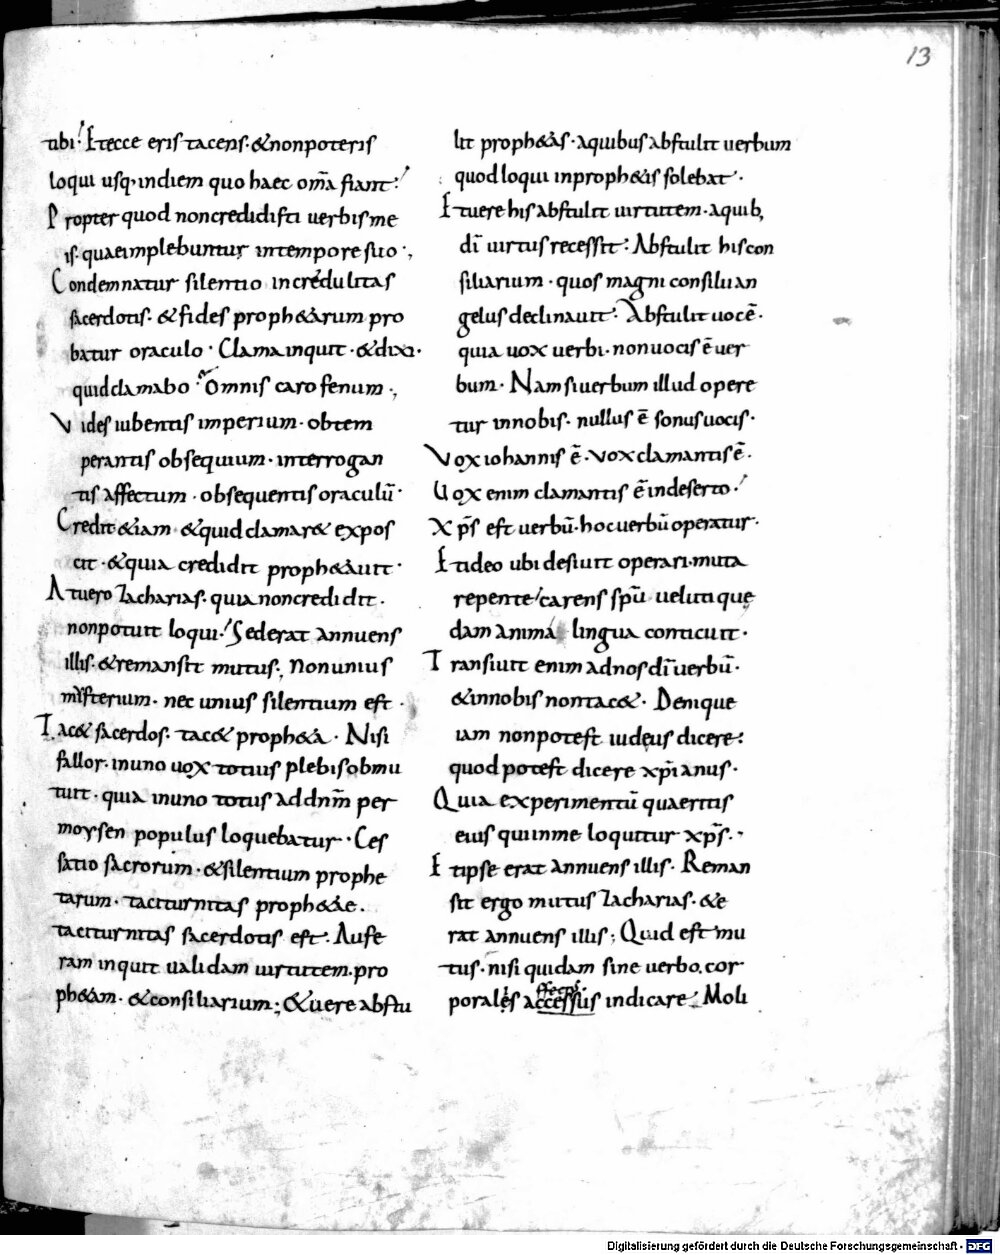 13
tibi! Et ecce eris tacens· & non poteris
loqui usq; in diem quo haec om̅a fiant!
Propter quod non credidisti uerbis me
is· quae implebuntur in tempore suo·,
Condemnatur silentio incredulitas
sacerdotis· & fides proph&arum pro
batur oraculo· Clama inquit· & dixi·
quid clamabo· Omnis caro fenum·,
Vides iubentis imperium· obtem
perantis obsequium· interrogan
tis affectum· obsequentis oraculū·
Credit &iam· & quid clamar& expos
cit· & quia credidit proph&auit·
At uero Zacharias· quia non credidit·
non potuit loqui·! Sed erat annuens
illis· & remansit mutus·, Non unius
mysterium· nec unius silentium est·
Tac& sacerdos· tac& proph&a· Nisi
fallor· in uno uox totius plebis obmu
tuit· quia in uno totus ad dnm̅ per
moysen populus loquebatur·· Ces
satio sacrorum· & silentium prophe
tarum· taciturnitas proph&ae·
taciturnitas sacerdotis est· Aufe
ram inquit ualidam uirtutem· pro
ph&am· & consiliarium·, & uere abstu
lit proph&as· a quibus abstulit uerbum
quod loqui in proph&is solebat·
Et uere his abstulit uirtutem· a quib;
dī uirtus recessit: Abstulit his con
siliarium· quos magni consilii an
gelus declinauit· Abstulit uocē·
quia uox uerbi· non uocis ē uer
bum· Nam si uerbum illud opere
tur in nobis· nullus ē sonus uocis·
Vox iohannis ē· vox clamantis ē·
Uox enim clamantis ē in deserto·!
Xp̅s est uerbū· hoc uerbū operatur·
Et ideo ubi desiuit operari· muta
repente/ carens spū ueluti quę
dam anima lingua conticuit·
Transiuit enim ad nos dī uerbū·
& in nobis non tac&· Denique
iam non potest iudęus dicere:
quod potest dicere xp̅ianus·
Quia experimentū quaeritis
eius qui in me loquitur xp̅s··
Et ipse erat annuens illis· Reman
sit ergo mutus Zacharias· & e
rat annuens illis; Quid est mu
tus· nisi quidam sine uerbo· cor
porales accessus indicare· Moli
Digitalisierung gefördert durch die Deutsche Forschungsgemeinschaft - DFG